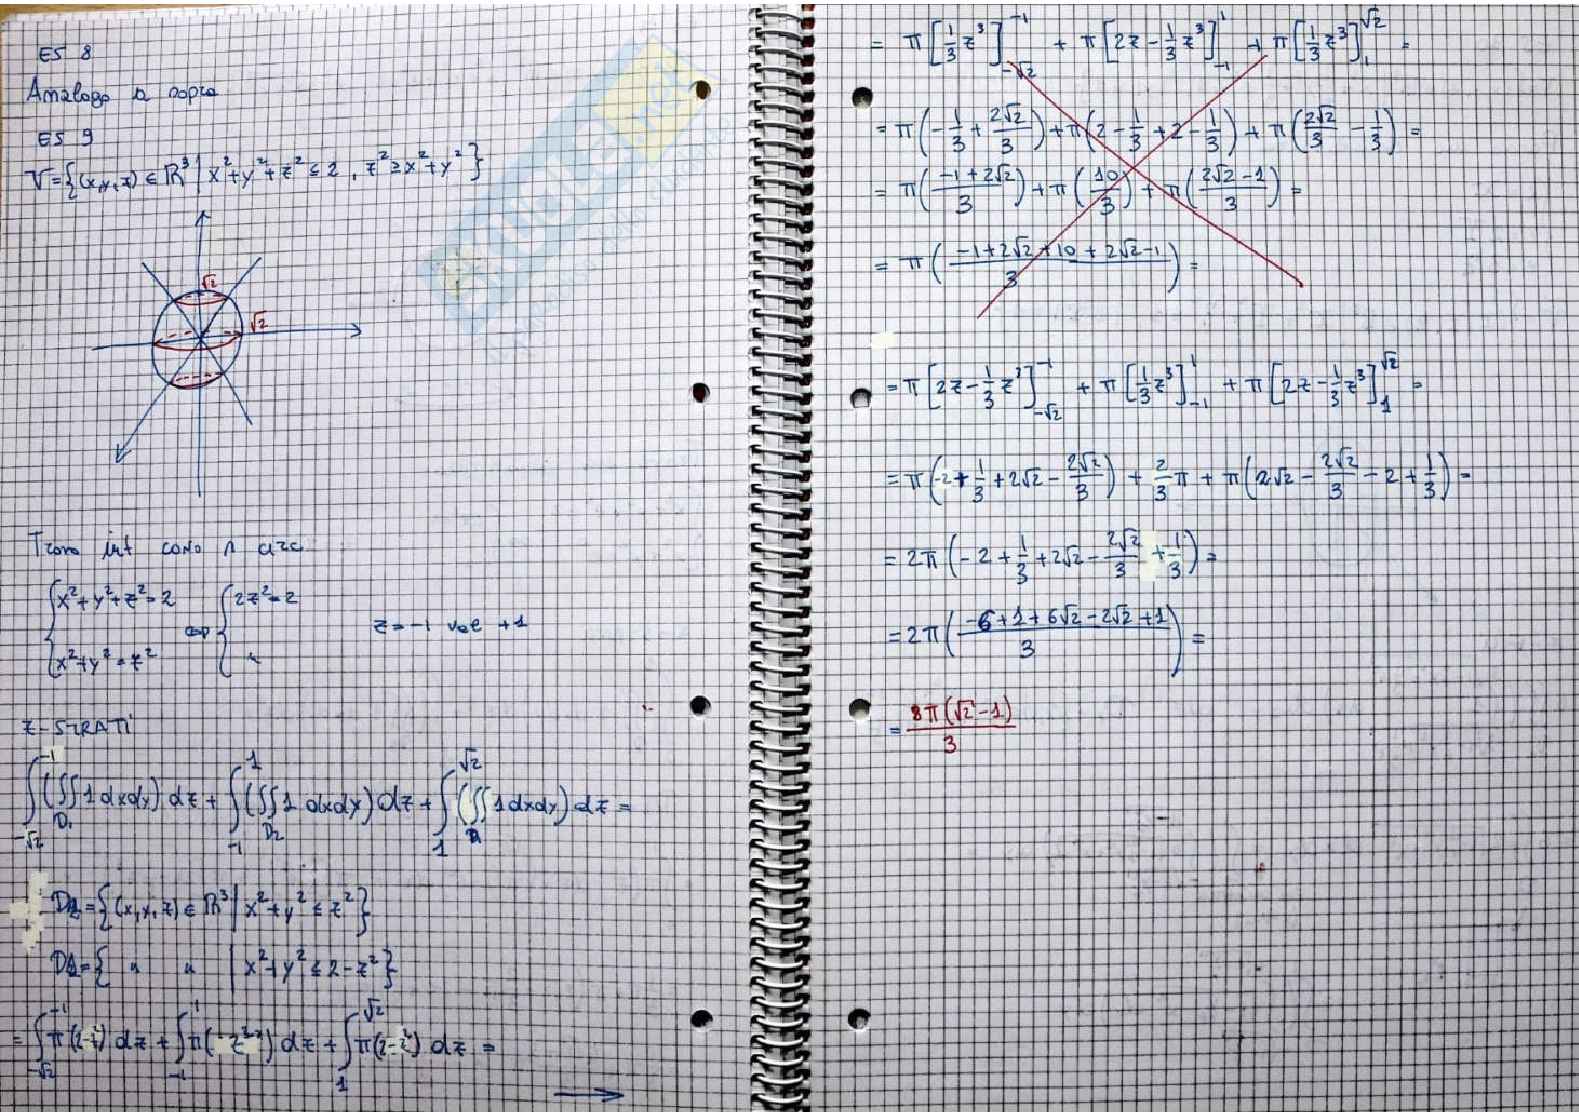 ES 8
Analogo a sopra
ES 9
V={(x,y,z) ∈ ℝ³ | x²+y²+z² ≤ 2, z² ≥ x²+y²}
√2
√2
Trovo int cono ∩
{x²+y²+z²=2 ⇔ {2z²=2 z=-1 vel +1
{x²+y²=z² { "
Z-STRATI
∫_{-√2}^{-1} (∬_{D₁} 1 dxdy) dz + ∫_{-1}^{1} (∬_{D₂} 1 dxdy) dz + ∫_{1}^{√2} (∬ 1 dxdy) dz =
D2={(x,y,z) ∈ ℝ³ | x²+y² ≤ z²}
D1={ " " | x²+y² ≤ 2-z²}
= ∫_{-√2}^{-1} π(2-z²) dz + ∫_{-1}^{1} π( z² ) dz + ∫_{1}^{√2} π(2-z²) dz =
→
= π[1/3 z³]_{-√2}^{-1} + π[2z - 1/3 z³]_{-1}^{1} + π[1/3 z³]_{1}^{√2} =
= π(-1/3 + 2√2/3) + π(2 - 1/3 + 2 - 1/3) + π(2√2/3 - 1/3) =
= π((-1+2√2)/3) + π(10/3) + π((2√2-1)/3) =
= π((-1+2√2+10+2√2-1)/3) =
= π[2z - 1/3 z³]_{-√2}^{-1} + π[1/3 z³]_{-1}^{1} + π[2z - 1/3 z³]_{1}^{√2} =
= π(-2 + 1/3 + 2√2 - 2√2/3) + 2/3 π + π(2√2 - 2√2/3 - 2 + 1/3) =
= 2π(-2 + 1/3 + 2√2 - 2√2/3 + 1/3) =
= 2π((-6+1+6√2-2√2+1)/3) =
= 8π(√2-1)/3